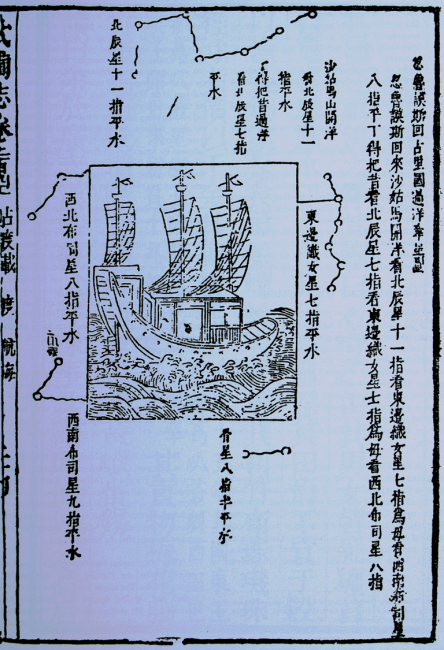 忽魯謨斯回古里國過洋牽星圖
忽魯謨斯回來沙姑馬開洋看北辰星十一指看東邊織女星七指為母看西南布司星
八指平丁得把昔看北辰星七指看東邊織女星七指為母看西北布司星八指
沙姑馬山開洋
看北辰星十一
指平水
丁得把昔過洋
看北辰星七指
平水
北辰星十一指平水
東邊織女星七指平水
西北布司星八指平水
骨星八指半平水
西南布司星九指平水
航海